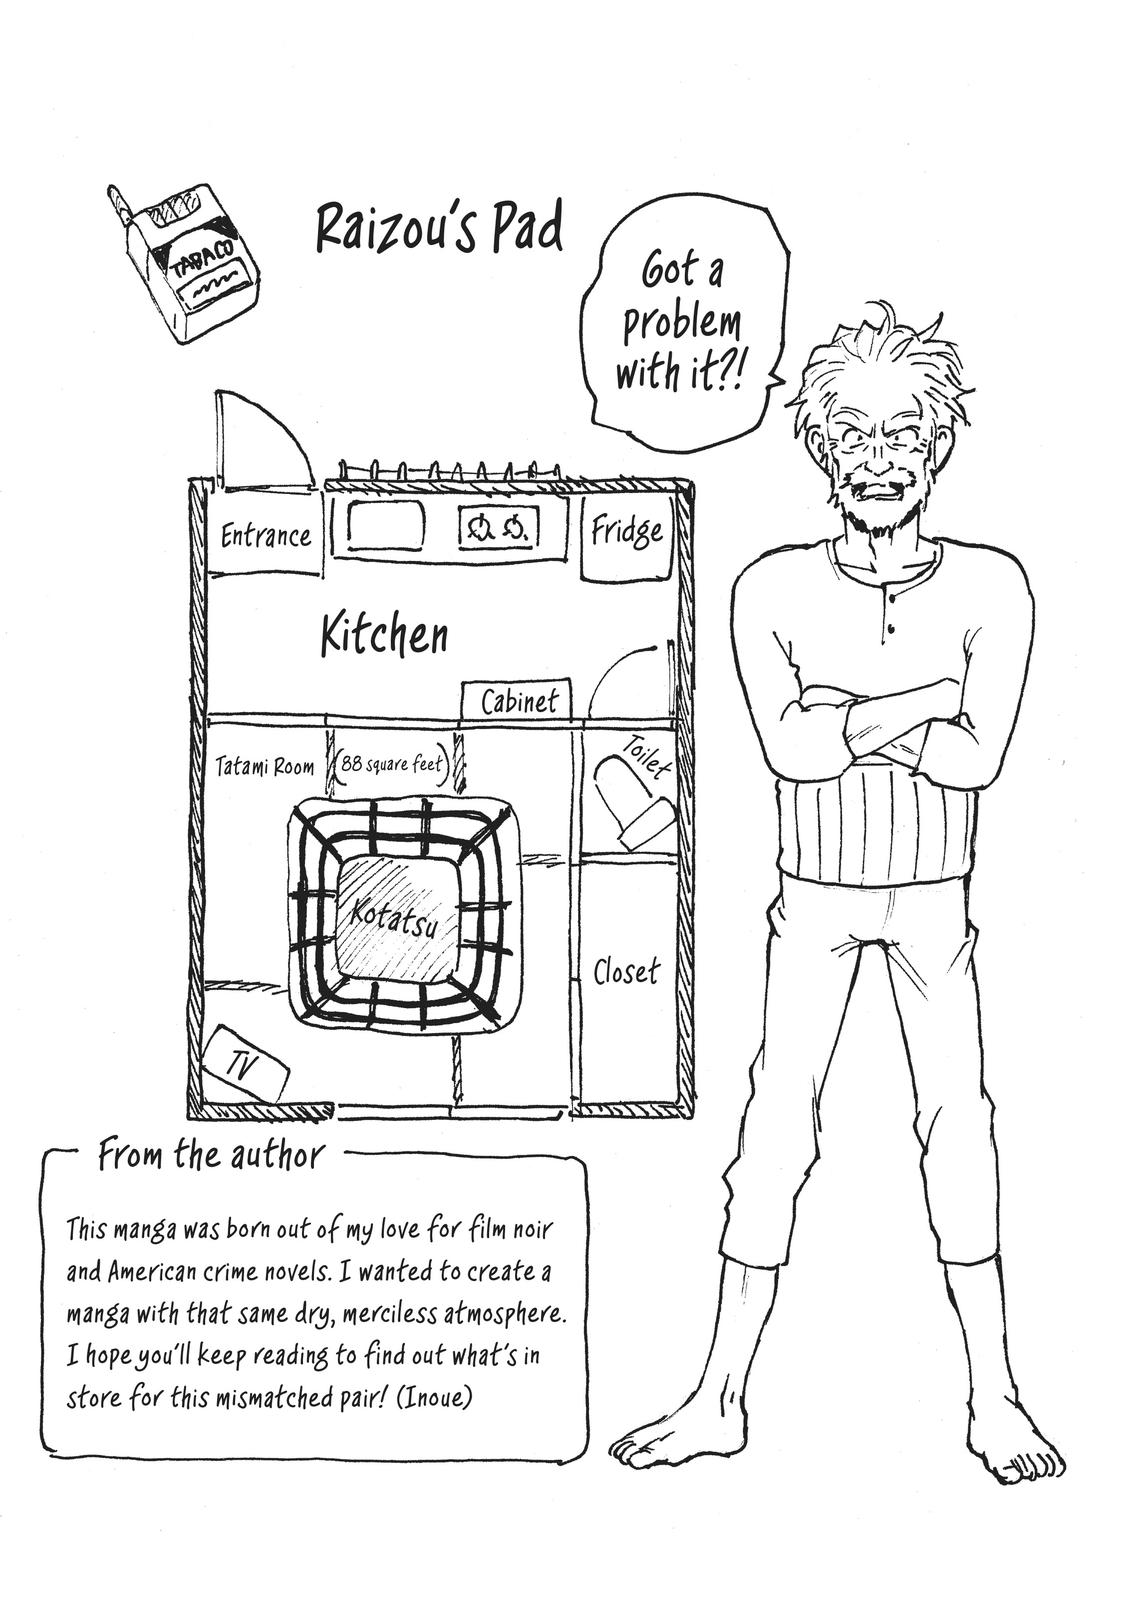 TABACO
Raizou's Pad
Got a
problem
with it?!
Entrance
Fridge
Kitchen
Cabinet
Tatami Room
(88 square feet)
Toilet
Kotatsu
Closet
TV
From the author
This manga was born out of my love for film noir
and American crime novels. I wanted to create a
manga with that same dry, merciless atmosphere.
I hope you'll keep reading to find out what's in
store for this mismatched pair! (Inoue)